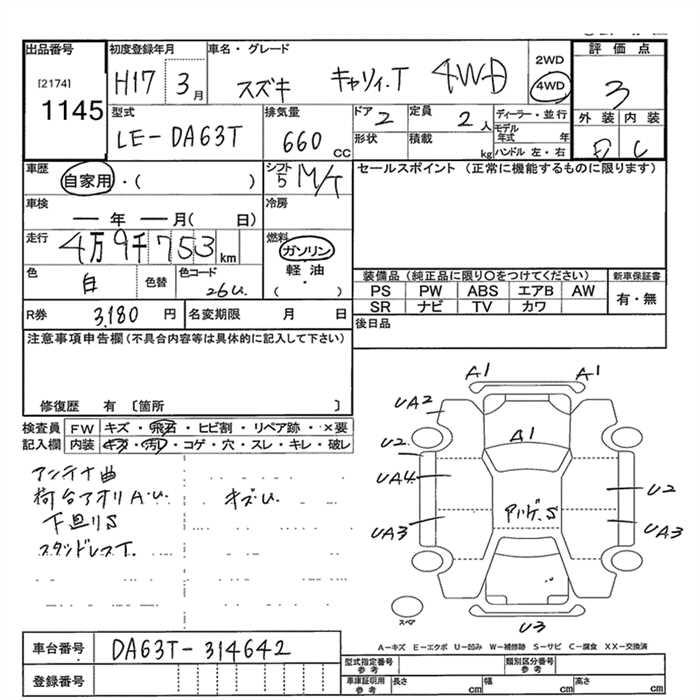 出品番号
[2174]
1145
初度登録年月
H17 3月
車名・グレード
スズキ キャリィ.T 4WD
2WD
4WD
評価点
3
外装 内装
E C
型式
LE-DA63T
排気量
660 cc
ドア 2
定員 2人
形状
積載 kg
ディーラー・並行
モデル年式 年
ハンドル 左・右
車歴
自家用・( )
シフト
5 M/T
セールスポイント (正常に機能するものに限ります)
車検
年 月( 日)
冷房
走行
4万9千753km
燃料
ガソリン
軽油
・
( )
色 白
色替
色コード
26U.
装備品 (純正品に限り○をつけてください)
PS PW ABS エアB AW
SR ナビ TV カワ
新車保証書
有・無
R券 3,180円
名変期限 月 日
後日品
注意事項申告欄(不具合内容等は具体的に記入して下さい)
修復歴 有 [箇所 ]
検査員記入欄
FW キズ・飛石・ヒビ割・リペア跡・×要
内装 キズ・汚れ・コゲ・穴・スレ・キレ・破レ
アンテナ曲
荷台アオリA.U.
キズU.
下廻りS
スタッドレスT.
A1
A1
UA2
A1
U2
UA4
U2
UA3
UA3
U3
スペア
A-キズ E-エクボ U-凹み W-補修跡 S-サビ C-腐食 XX-交換済
車台番号
DA63T-314642
登録番号
型式指定番号参考
類別区分番号参考
車庫証明用参考
長さ cm
幅 cm
高さ cm